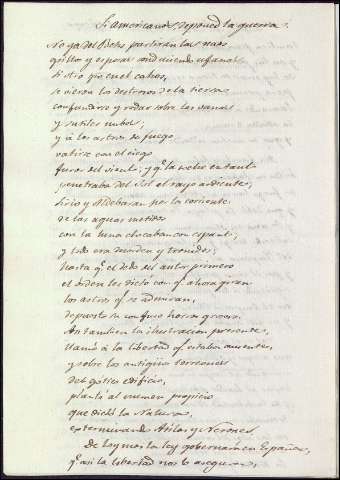 Si americanos, deponed la guerra:
No ya del Betis partiran las naos
grillos y esposas conduciendo ufanas
Si dio que en el cahos,
se vieron los destrozos de la tierra
confundirse y rodar sobre las vanas
y sutiles nubes;
y á los astros de fuego
vatirse con el ciego
furor del viento; y qe. la            en tanto
penetraba del Sol el rayo ardiente,
Sirio y Aldebaran por la corriente
de las aguas metidos
con la luna chocaban con espanto;
y todo era desorden y tronidos;
hasta qe. el dedo del autor primero
el orden les dictó con qe. ahora giran
los astros qe. se admiran,
depuesto su confuso horror grosero.
Asi tambien la ilustracion presente,
llamó á la libertad qe. estaba ausente,
y sobre los antigüos torreones
del gotico edificio,
plantó al numen propicio
que dictó la Natura,
exterminando Atilas y Nerones.
De hoy mas la ley gobernará en España,
qe. asi la libertad nos lo asegura,